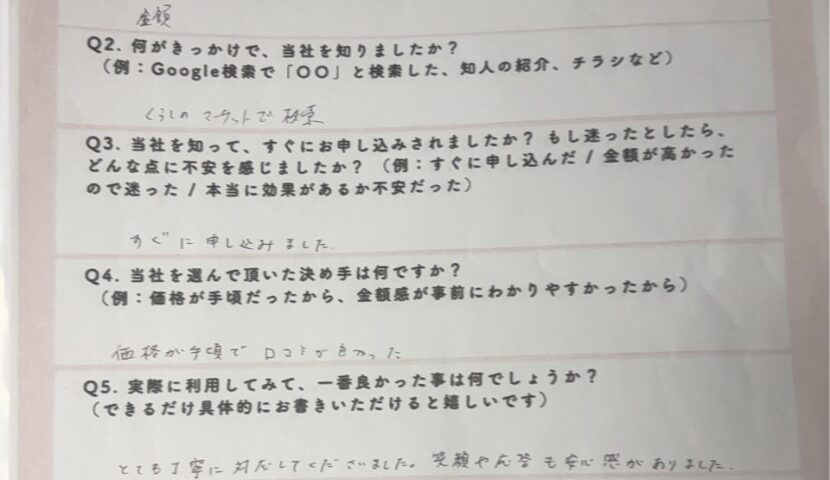 金額
Q2. 何がきっかけで、当社を知りましたか？
（例：Google検索で「〇〇」と検索した、知人の紹介、チラシなど）
くらしのマーケットで検索
Q3. 当社を知って、すぐにお申し込みされましたか？ もし迷ったとしたら、
どんな点に不安を感じましたか？（例：すぐに申し込んだ / 金額が高かった
ので迷った / 本当に効果があるか不安だった）
すぐに申し込みました.
Q4. 当社を選んで頂いた決め手は何ですか？
（例：価格が手頃だったから、金額感が事前にわかりやすかったから）
価格が手頃で 口コミが良かった
Q5. 実際に利用してみて、一番良かった事は何でしょうか？
（できるだけ具体的にお書きいただけると嬉しいです）
とても丁寧に対応してくださいました。笑顔や応答も安心感がありました.